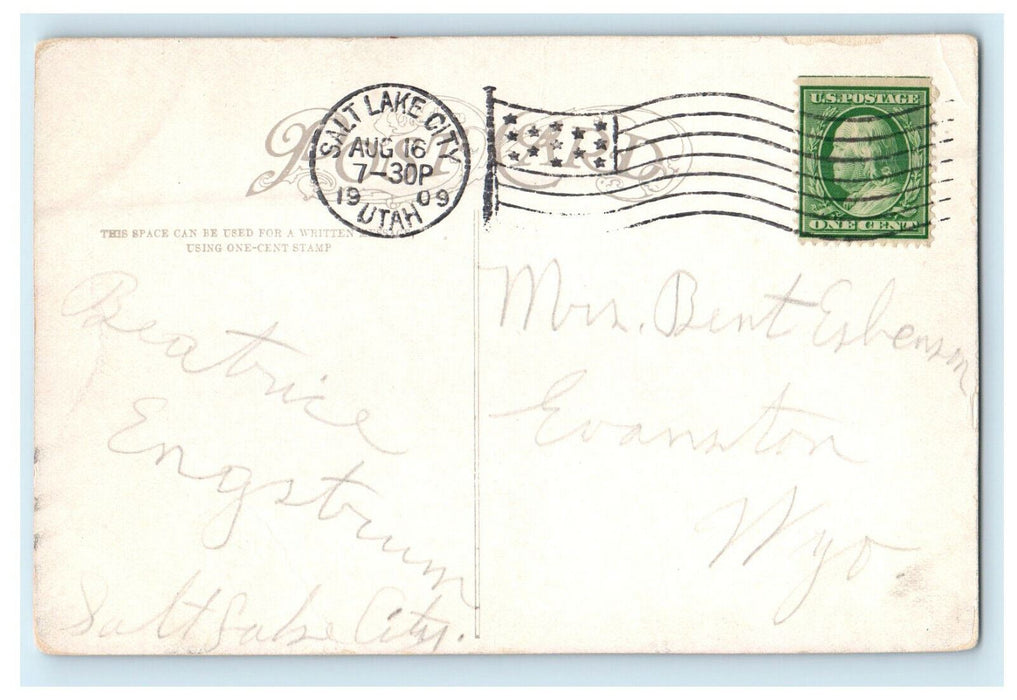 POST CARD
SALT LAKE CITY
AUG 16
7-30P
1909
UTAH
U.S. POSTAGE
ONE CENT
THIS SPACE CAN BE USED FOR A WRITTEN
USING ONE-CENT STAMP
Beatrice
Engstrum
Salt Lake City.
Mrs. Bent Esbenson
Evanston
Wyo.